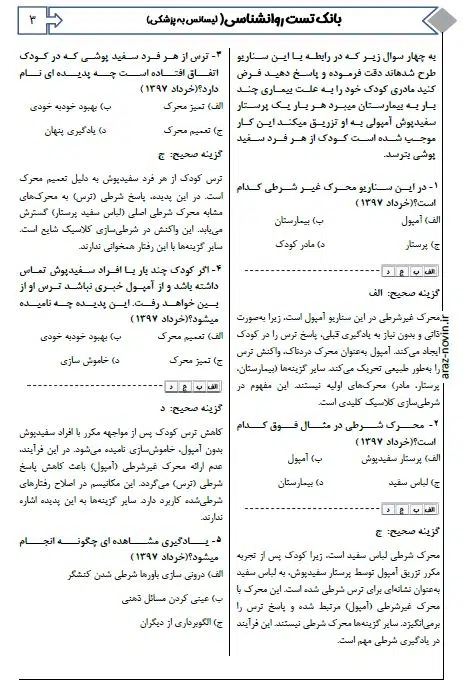 بانک تست روانشناسی( لیسانس به پزشکی)
۳
به چهار سوال زیر که در رابطه با این سناریو
طرح شدهاند دقت فرموده و پاسخ دهید فرض
کنید مادری کودک خود را به علت بیماری چند
بار به بیمارستان میبرد هر بار یک پرستار
سفیدپوش آمپولی به او تزریق میکند این کار
موجب شده است کودک از هر فرد سفید
پوشی بترسد.
۱- در این سناریو محرک غیر شرطی کدام
است؟(خرداد ۱۳۹۷)
الف) آمپول
ب) بیمارستان
ج) پرستار
د) مادر کودک
الف ب ج د
گزینه صحیح: الف
محرک غیرشرطی در این سناریو آمپول است، زیرا به‌صورت
ذاتی و بدون نیاز به یادگیری قبلی، پاسخ ترس را در کودک
ایجاد می‌کند. آمپول به‌عنوان محرک دردناک، واکنش ترس
را به‌طور طبیعی تحریک می‌کند. سایر گزینه‌ها (بیمارستان،
پرستار، مادر) محرک‌های اولیه نیستند. این مفهوم در
شرطی‌سازی کلاسیک کلیدی است.
۲- محرک شرطی در مثال فوق کدام
است؟(خرداد ۱۳۹۷)
الف) پرستار سفیدپوش
ب) آمپول
ج) لباس سفید
د) بیمارستان
الف ب ج د
گزینه صحیح: ج
محرک شرطی لباس سفید است، زیرا کودک پس از تجربه
مکرر تزریق آمپول توسط پرستار سفیدپوش، به لباس سفید
به‌عنوان نشانه‌ای برای ترس شرطی شده است. این محرک با
محرک غیرشرطی (آمپول) مرتبط شده و پاسخ ترس را
برمی‌انگیزد. سایر گزینه‌ها محرک شرطی نیستند. این فرآیند
در یادگیری شرطی مهم است.
۳- ترس از هر فرد سفید پوشی که در کودک
اتفاق افتاده است چه پدیده ای نام
دارد؟(خرداد ۱۳۹۷)
الف) تمیز محرک
ب) بهبود خودبه خودی
ج) تعمیم محرک
د) یادگیری پنهان
گزینه صحیح: ج
ترس کودک از هر فرد سفیدپوش به دلیل تعمیم محرک
است. در این پدیده، پاسخ شرطی (ترس) به محرک‌های
مشابه محرک شرطی اصلی (لباس سفید پرستار) گسترش
می‌یابد. این واکنش در شرطی‌سازی کلاسیک شایع است.
سایر گزینه‌ها با این رفتار همخوانی ندارند.
۴- اگر کودک چند بار با افراد سفیدپوش تماس
داشته باشد و از آمپول خبری نباشد ترس او از
بین خواهد رفت. این پدیده چه نامیده
میشود؟(خرداد ۱۳۹۷)
الف) تعمیم محرک
ب) بهبود خودبه خودی
ج) تمیز محرک
د) خاموش سازی
الف ب ج د
گزینه صحیح: د
کاهش ترس کودک پس از مواجهه مکرر با افراد سفیدپوش
بدون آمپول، خاموش‌سازی نامیده می‌شود. در این فرآیند،
عدم ارائه محرک غیرشرطی (آمپول) باعث کاهش پاسخ
شرطی (ترس) می‌گردد. این مکانیسم در اصلاح رفتارهای
شرطی‌شده کاربرد دارد. سایر گزینه‌ها به این پدیده اشاره
ندارند.
۵- یادگیری مشاهده ای چگونه انجام
میشود؟(خرداد ۱۳۹۷)
الف) درونی سازی باورها شرطی شدن کنشگر
ب) عینی کردن مسائل ذهنی
ج) الگوبرداری از دیگران
araz-novin.ir